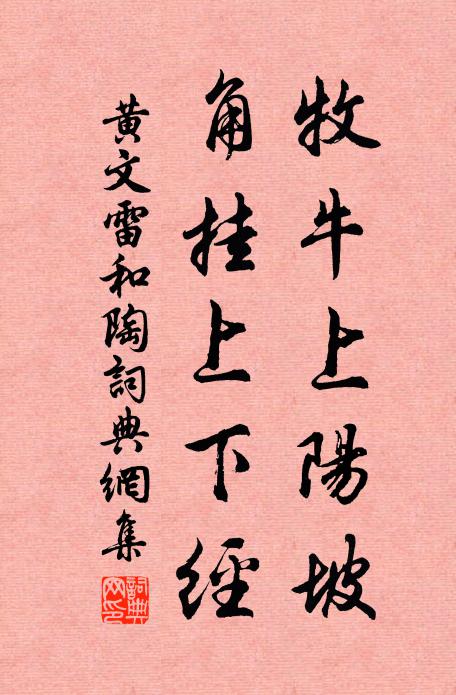 牧牛上陽坡
角挂上下經
黃文雷和陶詞典網集
詞典網印